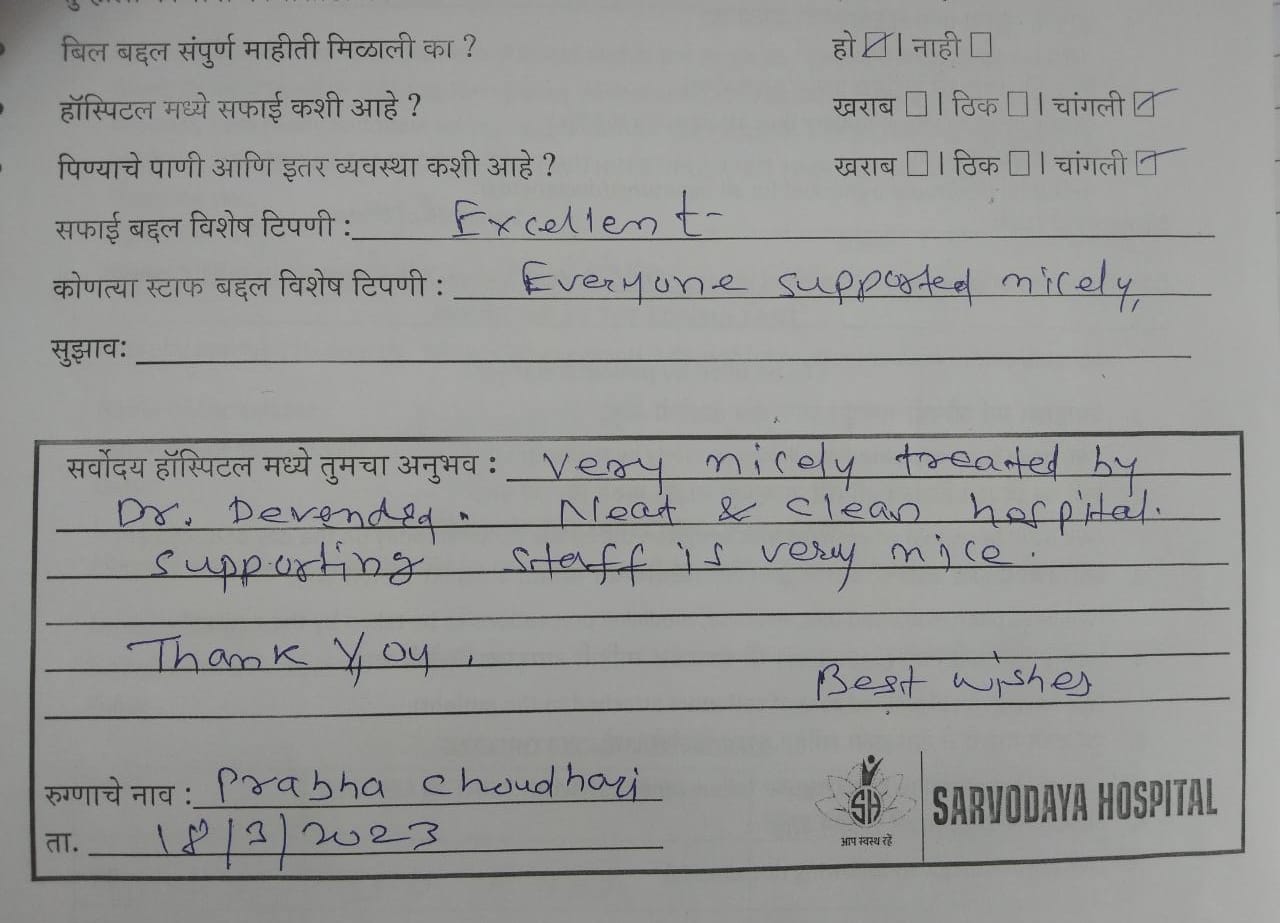 बिल बद्दल संपुर्ण माहीती मिळाली का ? हो ☑ । नाही ☐
हॉस्पिटल मध्ये सफाई कशी आहे ? खराब ☐ । ठिक ☐ । चांगली ☑
पिण्याचे पाणी आणि इतर व्यवस्था कशी आहे ? खराब ☐ । ठिक ☐ । चांगली ☑
सफाई बद्दल विशेष टिपणी : Excellent
कोणत्या स्टाफ बद्दल विशेष टिपणी : Everyone supported nicely,
सुझाव:
सर्वोदय हॉस्पिटल मध्ये तुमचा अनुभव : very nicely treated by
Dr. Devendra. Neat & Clean hospital.
supporting staff is very nice.
Thank You,
Best wishes
रुग्णाचे नाव : Prabha Choudhari
ता. 18/3/2023
SH
आप स्वस्थ रहें
SARVODAYA HOSPITAL